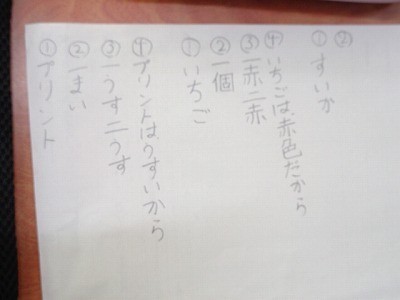 ②
①すいか
④いちごは、赤色だから
③一赤二赤
②一個
①いちご
④プリントはうすいから
③一うす二うす
②一まい
①プリント